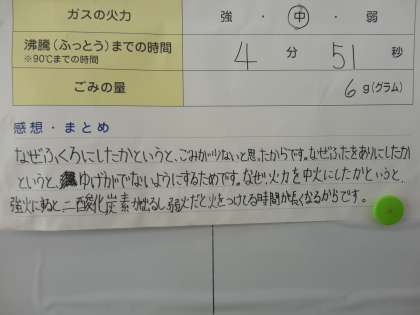 ガスの火力 強 ・ 中 ・ 弱
沸騰(ふっとう)までの時間 4 分 51 秒
※90℃までの時間
ごみの量 6 g(グラム)
感想・まとめ
なぜふくろにしたかというと、ごみが少ないと思ったからです。なぜふたをありにしたか
というと、ゆげがでないようにするためです。なぜ、火力を中火にしたかというと、
強火にすると、二酸化炭素が出るし、弱火だと火をつけてる時間が長くなるからです。